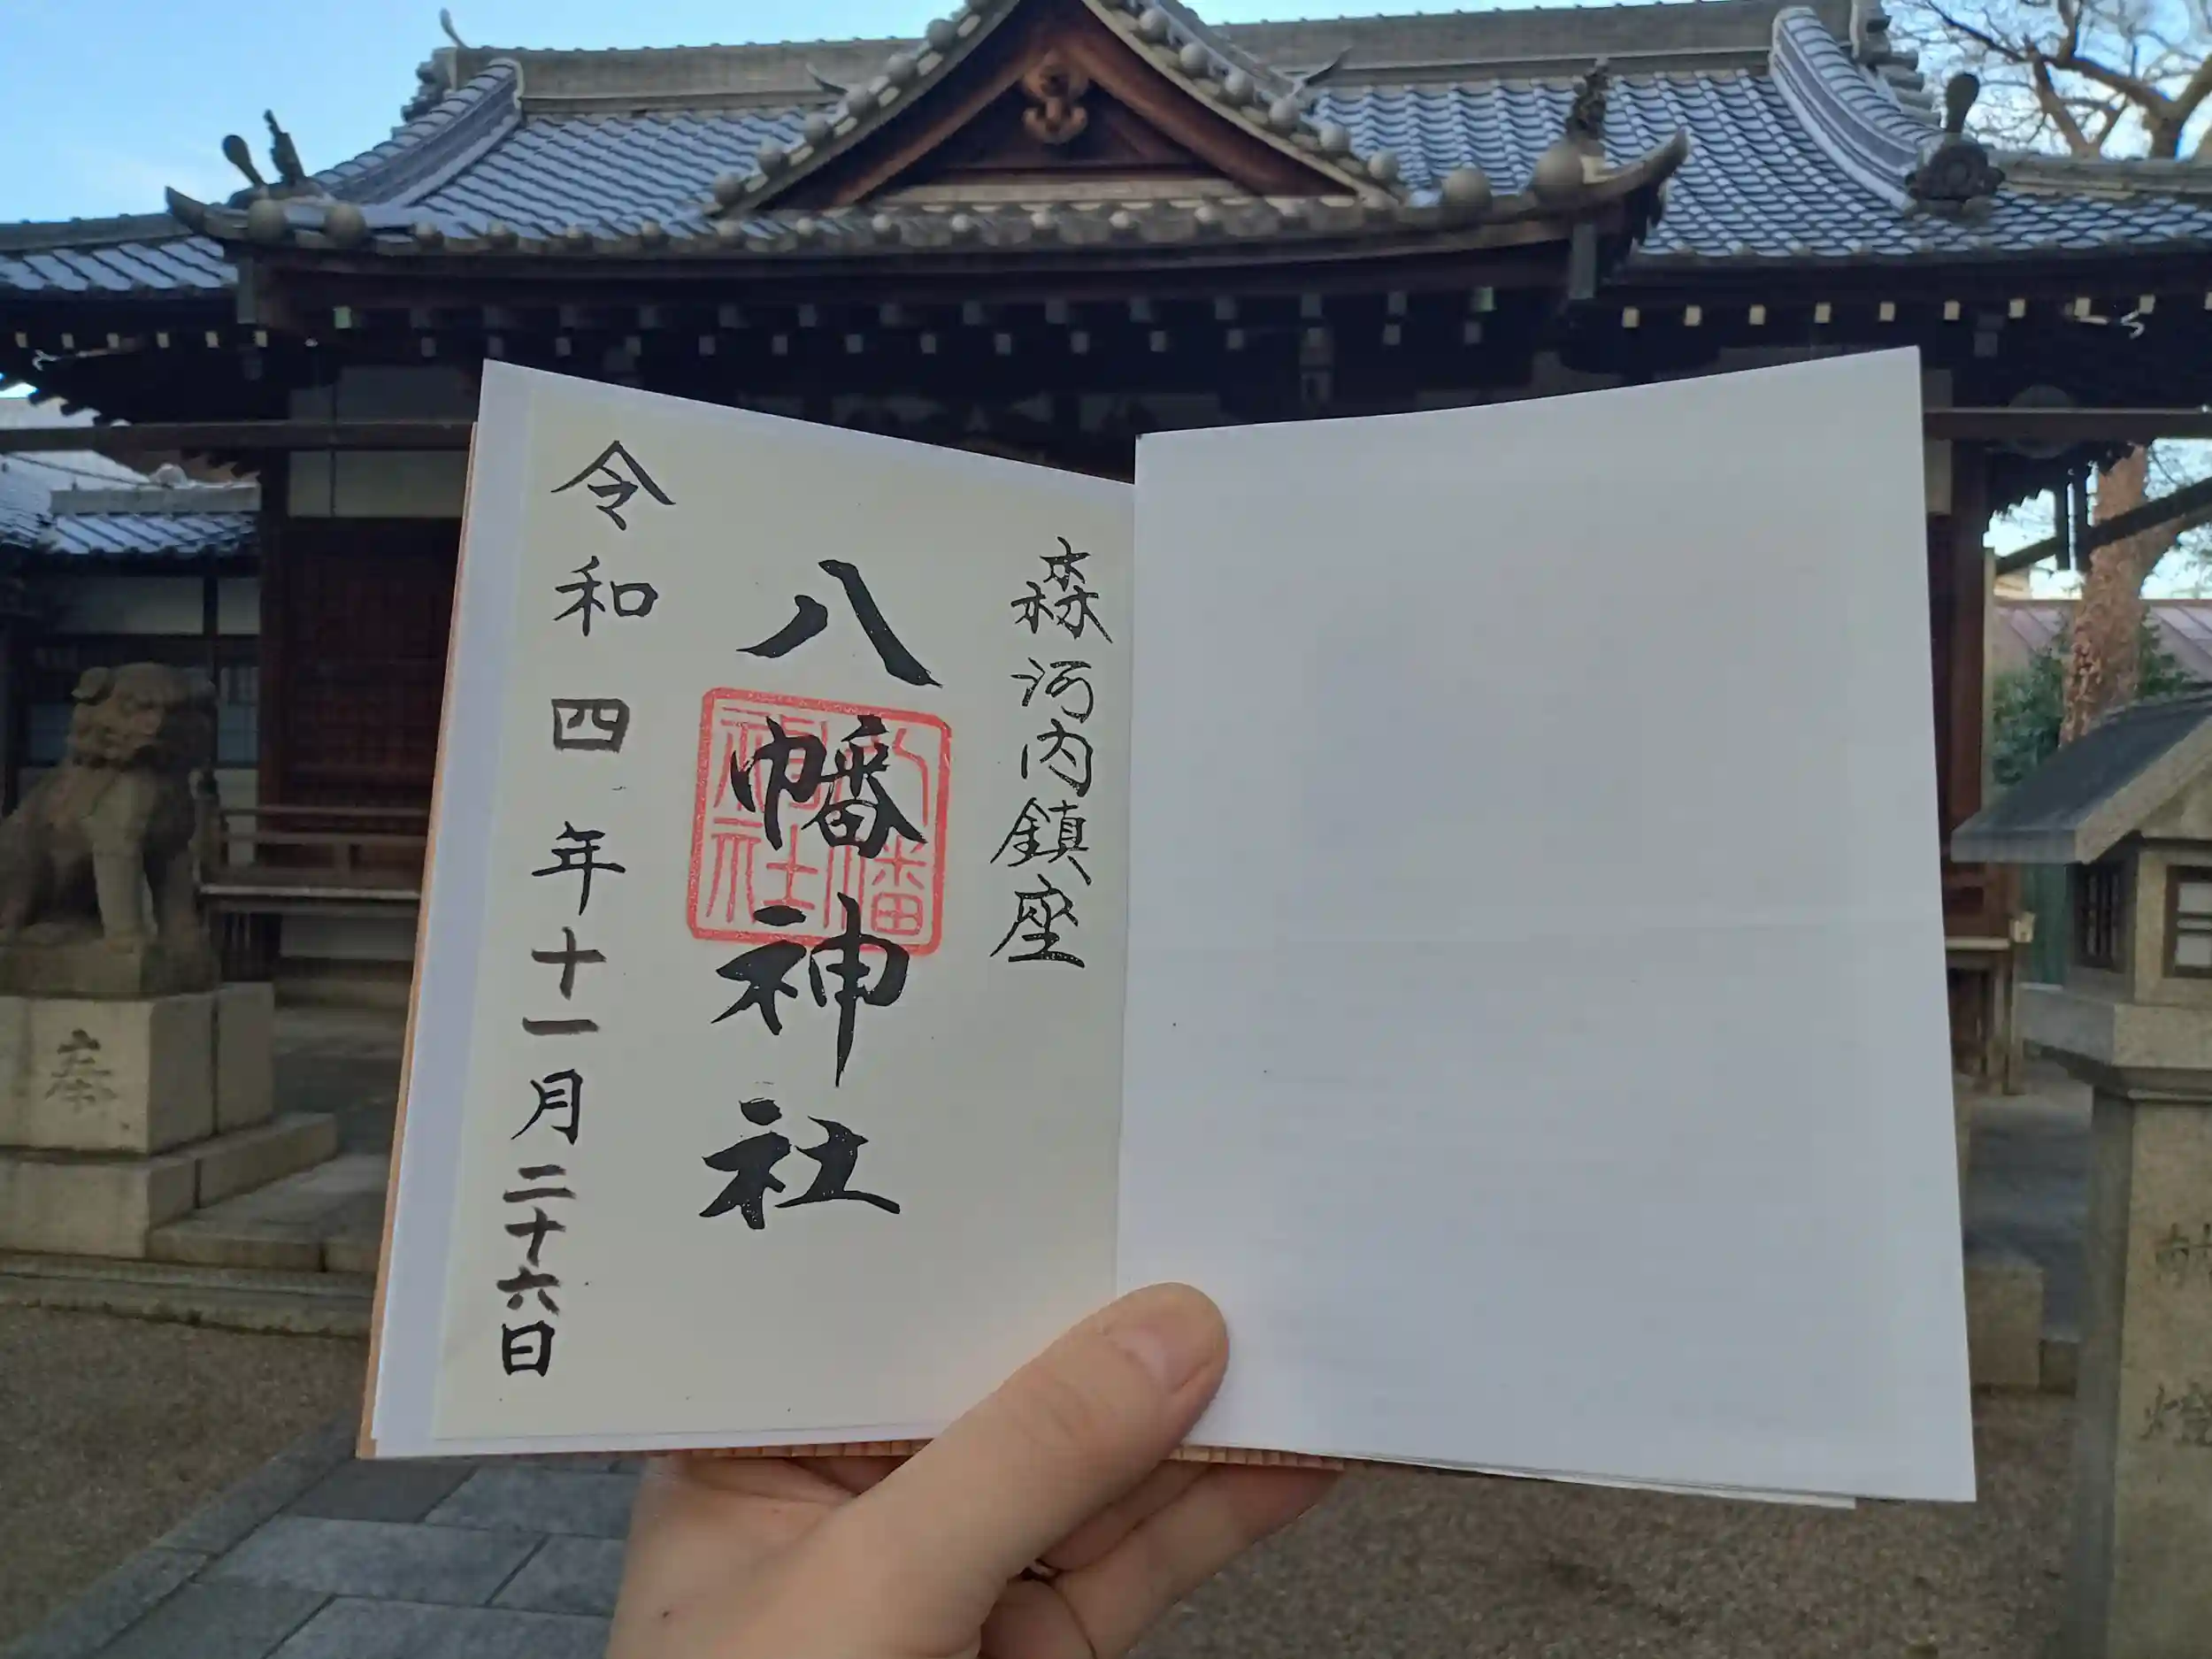 森河内鎮座
八幡神社
八幡神社
令和四年十一月二十六日
奉